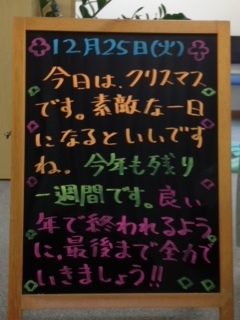 12月25日(火)
今日は、クリスマス
です。素敵な一日
になるといいです
ね。今年も残り
一週間です。良い
年で終われるよう
に、最後まで全力で
いきましょう!!